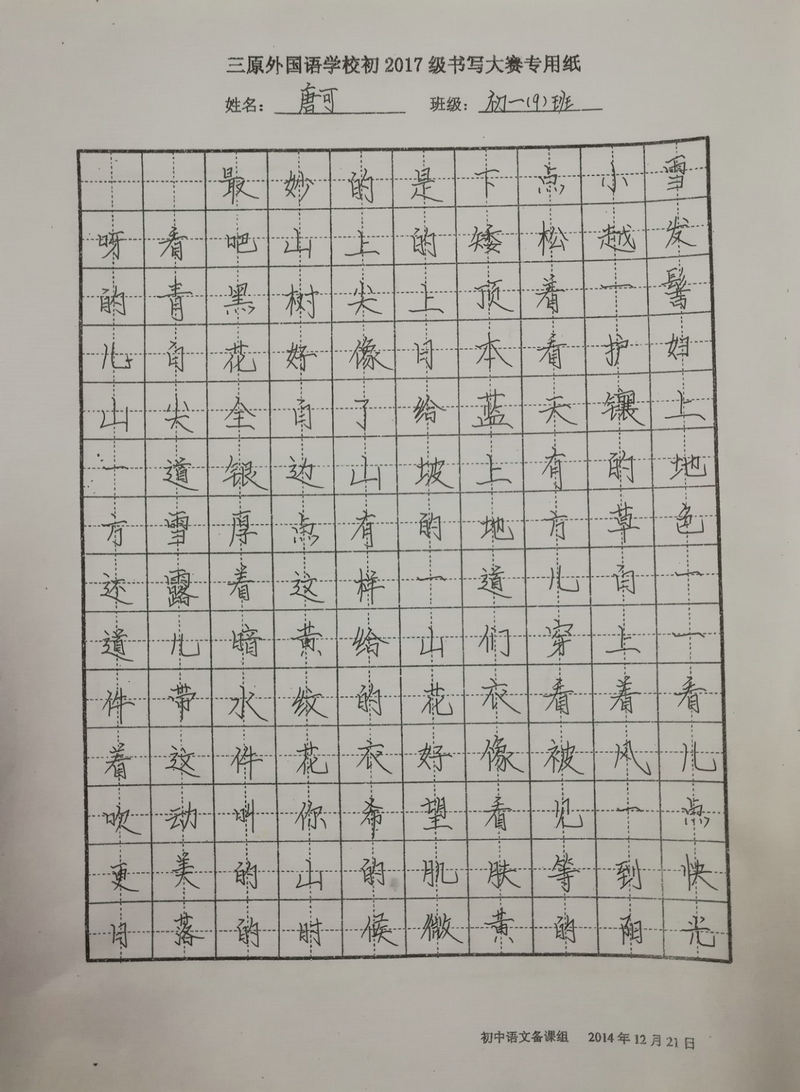 三原外国语学校初2017级书写大赛专用纸
姓名：唐可 班级：初一(9)班
最妙的是下点小雪
呀看吧山上的矮松越发
的青黑树尖上顶着一髻
儿白花好像日本看护妇
山尖全白了给蓝天镶上
一道银边山坡上有的地
方雪厚点有的地方草色
还露着这样一道儿白一
道儿暗黄给山们穿上一
件带水纹的花衣看着看
着这件花衣好像被风儿
吹动叫你希望看见一点
更美的山的肌肤等到快
日落的时候微黄的阳光
初中语文备课组 2014年12月21日